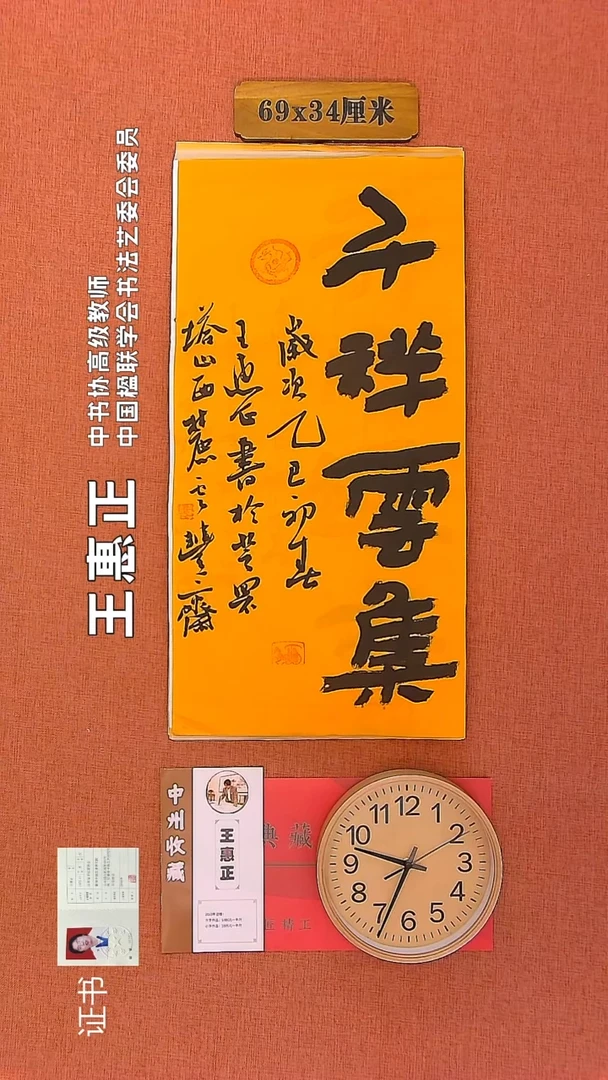 69x34厘米
千祥雲集
歲次乙巳初春
王惠正書於
塔山西麓
中书协高级教师
中国楹联学会书法艺委会委员
王惠正
王惠正
典藏
12
1
2
3
4
5
6
7
8
9
10
11
证书